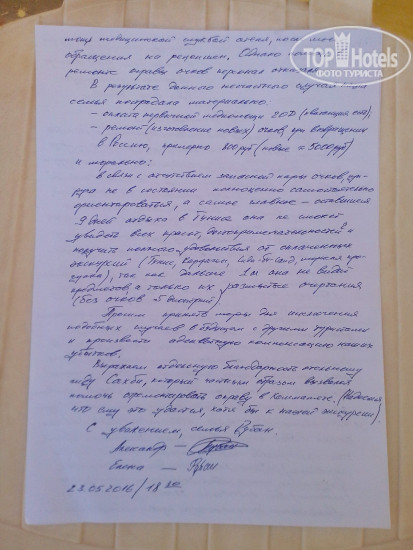 TOPHotels
ФОТО ТУРИСТА
мощь медицинской службой отеля, после моего
обращения на рецепшен. Однако
ремонте оправы очков персонал
В результате данного несчастного случая
семья пострадала материально:
– оплата первичной медпомощи 20D
– ремонт (изготовление новых) очков, при возвращении
в Россию, примерно 800руб (новые ≈ 5000руб)
и морально:
в связи с отсутствием запасной пары очков,
ра не в состоянии полноценно самостоятельно
ориентироваться, а самое главное – оставшиеся
9 дней отдыха в Тунисе она не сможет
увидеть всех красот, достопримечательностей и
получить полного удовольствия от оплаченных
экскурсий (Тунис, Карфаген, Сиди-Бу-Саид, морская про-
гулка), так как дальше 1м она не видит
предметов, а только их размытые очертания
(без очков
Просим принять меры для исключения
подобных случаев в будущем с другими туристами
и произвести адекватную компенсацию наших
убытков.
Выражаем отдельную благодарность отельному
гиду Сахби, который частным образом вызвался
помочь отремонтировать оправу в Хаммамете. (Надеемся
что ему это удастся, хотя бы к нашей экскурсии).
С уважением, семья Рубан.
Александр –
Елена –
23.05.2016 / 18